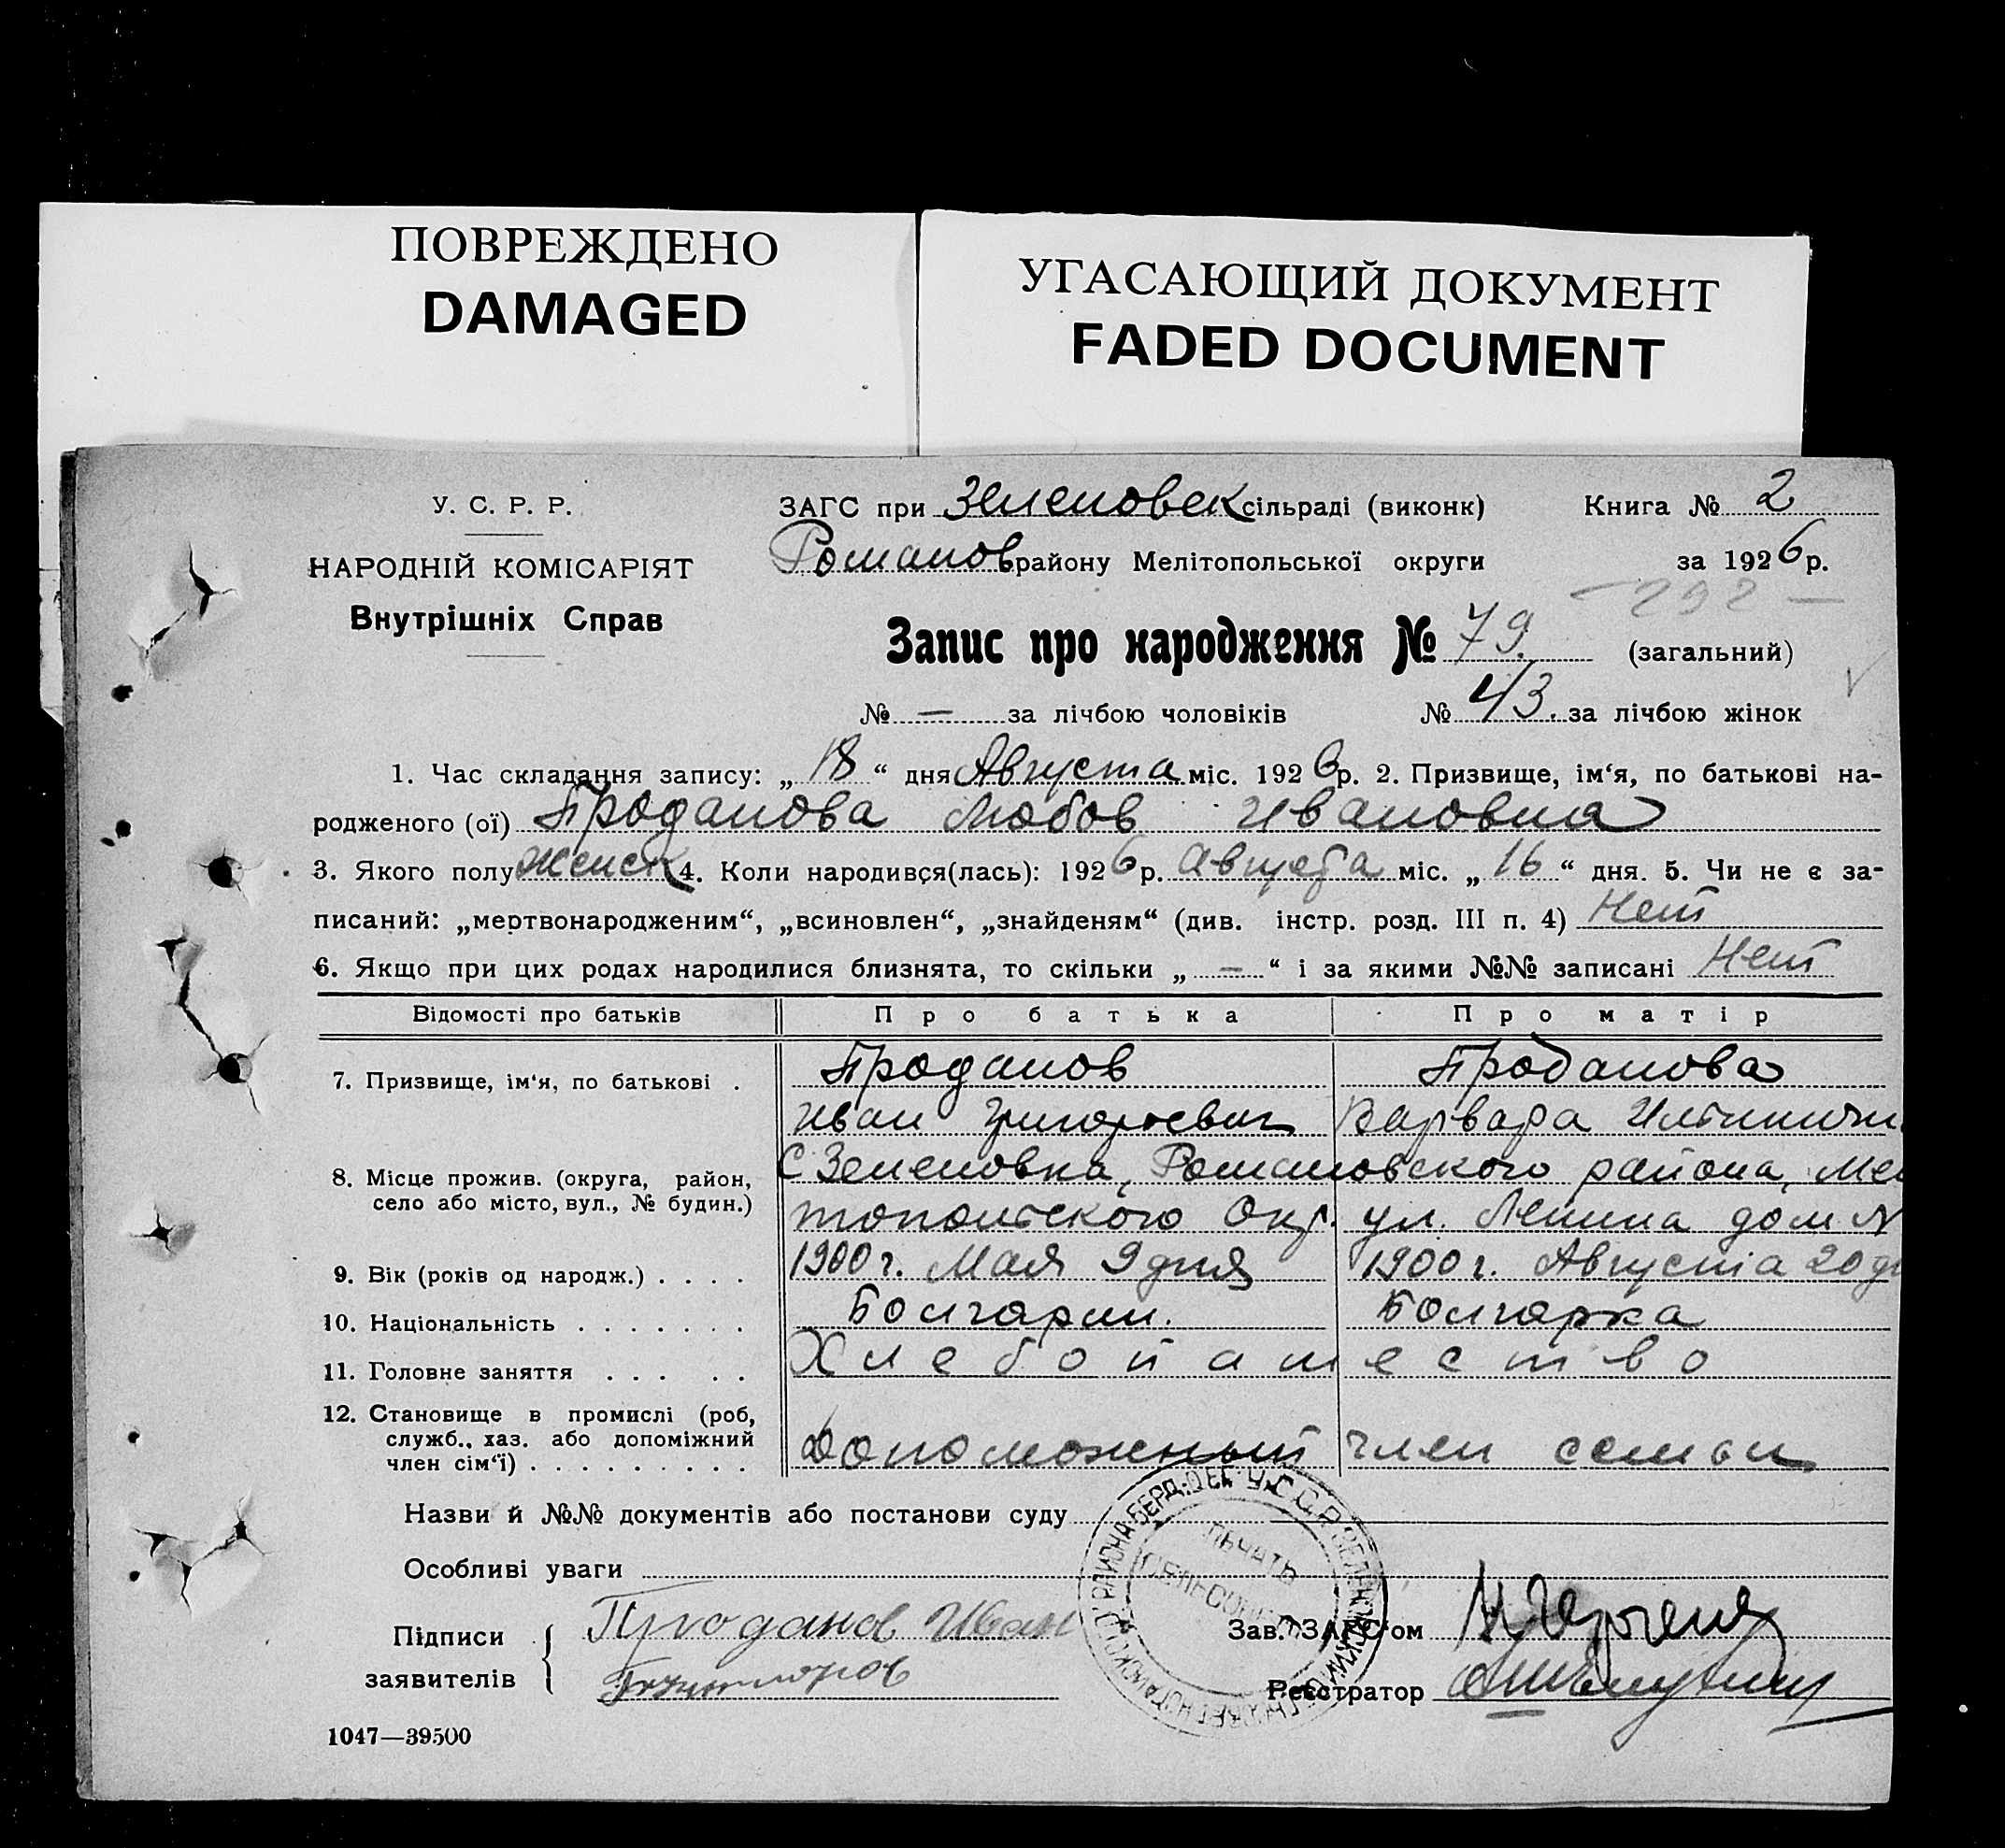 ПОВРЕЖДЕНО
DAMAGED
УГАСАЮЩИЙ ДОКУМЕНТ
FADED DOCUMENT
У. С. Р. Р.
НАРОДНІЙ КОМІСАРІЯТ
Внутрішніх Справ
ЗАГС при Зеленовск сільраді (виконк)
Романов району Мелітопольської округи
Книга № 2
за 1926 р.
— 292 —
Запис про народження № 79. (загальний)
№ — за лічбою чоловіків № 43. за лічбою жінок
1. Час складання запису: „ 18 “ дня Августа міс. 1926 р. 2. Призвище, ім‘я, по батькові на-
родженого (ої) Проданова Любов Ивановна
3. Якого полу Женск 4. Коли народився(лась): 1926 р. Августа міс. „ 16 “ дня. 5. Чи не є за-
писаний: „мертвонародженим“, „всиновлен“, „знайденям“ (див. інстр. розд. III п. 4) Нет
6. Якщо при цих родах народилися близнята, то скільки „ — “ і за якими №№ записані Нет
Відомості про батьків Про батька Про матір
7. Призвище, ім‘я, по батькові . Проданов Проданова
Иван Григорьевич Варвара
8. Місце прожив. (округа, район, С. Зеленовка, Романовского района, Мел
село або місто, вул., № будин.) топольского Окр. ул. Ленина дом №
9. Вік (років од народж.) . . . . 1900 г. Мая 9 дня 1900 г. Августа 20 дн
10. Національність . . . . . . . Болгарин. Болгарка
11. Головне заняття . . . . . Хлебопашество
12. Становище в промислі (роб,
служб., хаз. або допоміжний
член сім‘ї) . . . . . . . . . Допоможный член семьи
Назви й №№ документів або постанови суду
Особливі уваги
ПЕЧАТЬ
Підписи
заявителів
Проданов Иван
Зав. ЗАГС‘ом
Реєстратор
1047—39500